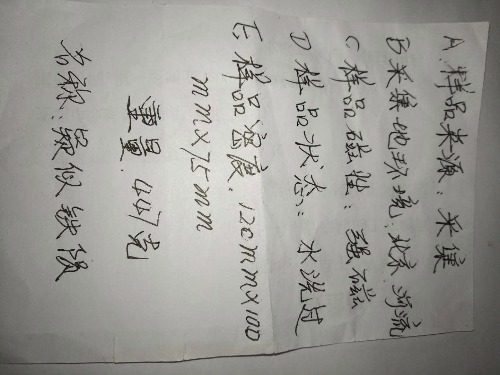 A 样品来源：采集
B 采集地环境：北京.河流
C 样品磁性：强磁
D 样品状态：水洗过
E：样品密度.120mmx100
mmx75mm
重量.447克
名称：疑似铁陨